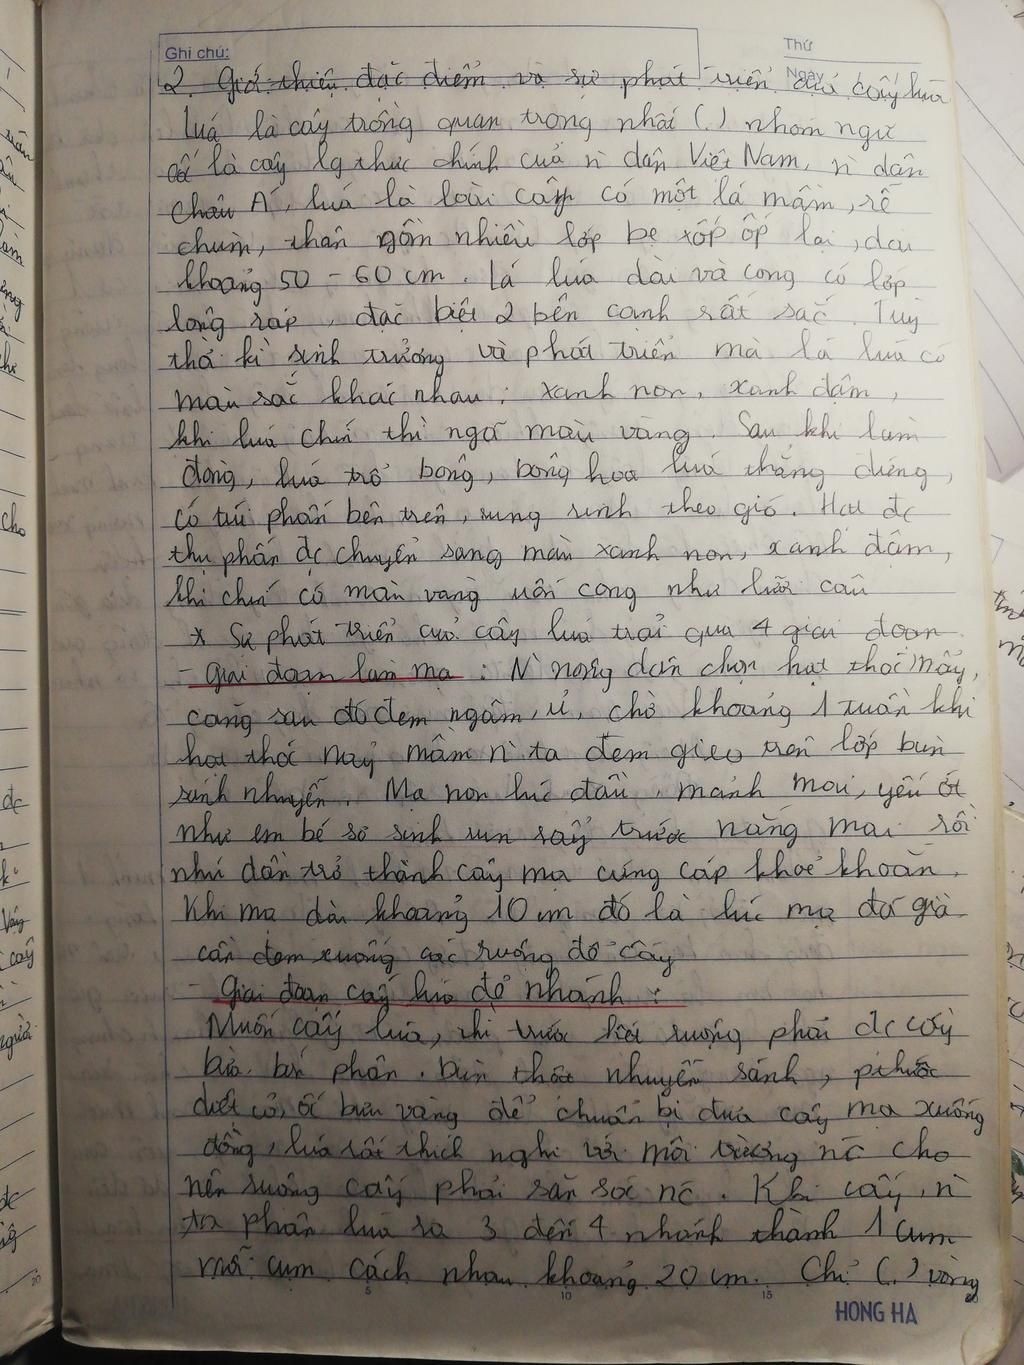 Ghi chú:
Thứ
Ngày
2. Giới thiệu đặc điểm và sự phát triển của cây lúa
Lúa là cây trồng quan trọng nhất (.) nhóm ngũ
cốc là cây lg thực chính của ǹ dân Việt Nam, ǹ dân
Châu Á, lúa là loài cây có một lá mầm, rễ
chùm, thân gồm nhiều lớp bẹ xốp ốp lại, dài
khoảng 50 - 60 cm. Lá lúa dài và cong có lớp
lông ráp, đặc biệt 2 bên cạnh rất sắc. Tùy
thờ kì sinh trưởng và phát triển mà lá lúa có
màu sắc khác nhau: xanh non, xanh đậm,
khi lúa chín thì ngả màu vàng. Sau khi làm
đòng, lúa trổ bông, bông hoa lúa thẳng đứng,
có túi phấn bên trên, rung rinh theo gió. Hạt đc
thụ phấn đc chuyển sang màu xanh non, xanh đậm,
khi chín có màu vàng uốn cong như lưỡi câu
* Sự phát triển của cây lúa trải qua 4 giai đoạn
- Giai đoạn làm mạ: Ǹ nông dân chọn hạt thóc mẩy,
căng sau đó đem ngâm, ủ, chờ khoảng 1 tuần khi
hạt thóc nảy mầm ǹ ta đem gieo trên lớp bùn
sánh nhuyễn. Mạ non lúc đầu, mảnh mai, yếu ớt
như em bé sơ sinh run rẩy trước nắng mai rồi
nhú dần trở thành cây mạ cứng cáp khoẻ khoắn.
Khi mạ dài khoảng 10 cm đó là lúc mạ đã già
cần đem xuống các ruộng để cấy
- Giai đoạn cấy lúa đẻ nhánh:
Muốn cấy lúa, thì trước hết ruộng phải đc cày
bừa, bón phân. Bùn thật nhuyễn sánh,
diệt cỏ, ốc bưu vàng để chuẩn bị đưa cây mạ xuống
đồng, lúa rất thích nghi với môi trường nc cho
nên ruộng cấy phải sẵn sóc nc. Khi cấy, ǹ
ta phân lúa ra 3 đến 4 nhánh thành 1 cụm
mỗi cụm cách nhau khoảng 20 cm. Chỉ (.) vòng
5 10 15 20
HONG HA